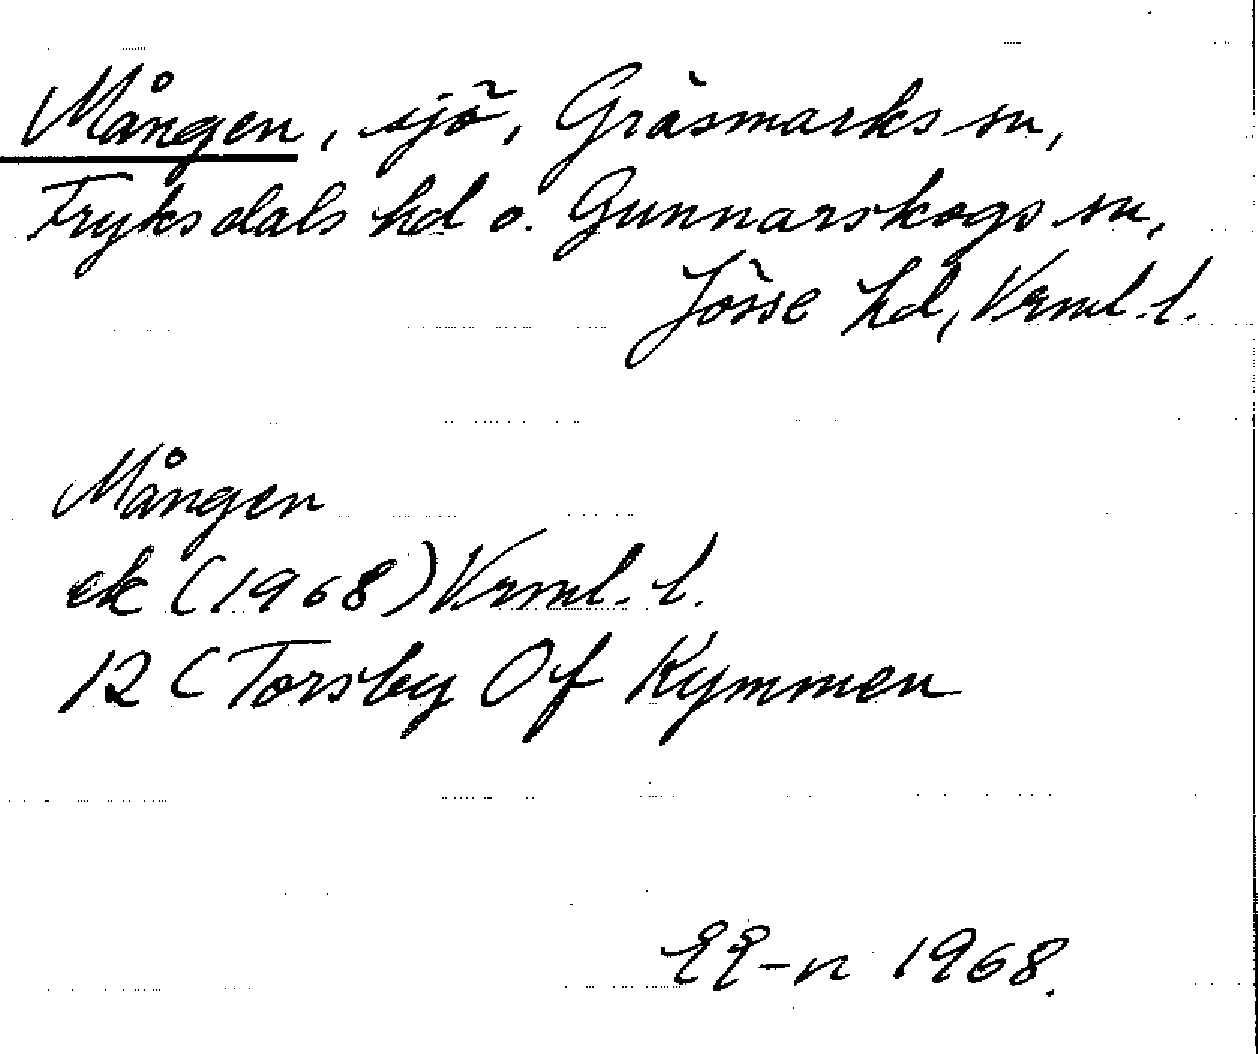 Mången, sjö, Gräsmarks sn,
Fryksdals hd o. Gunnarskogs sn,
Jösse hd, Vrml. l.
Mången
ek (1968) Vrml. l.
12 C Torsby 0f Kymmen
EE-n 1968.